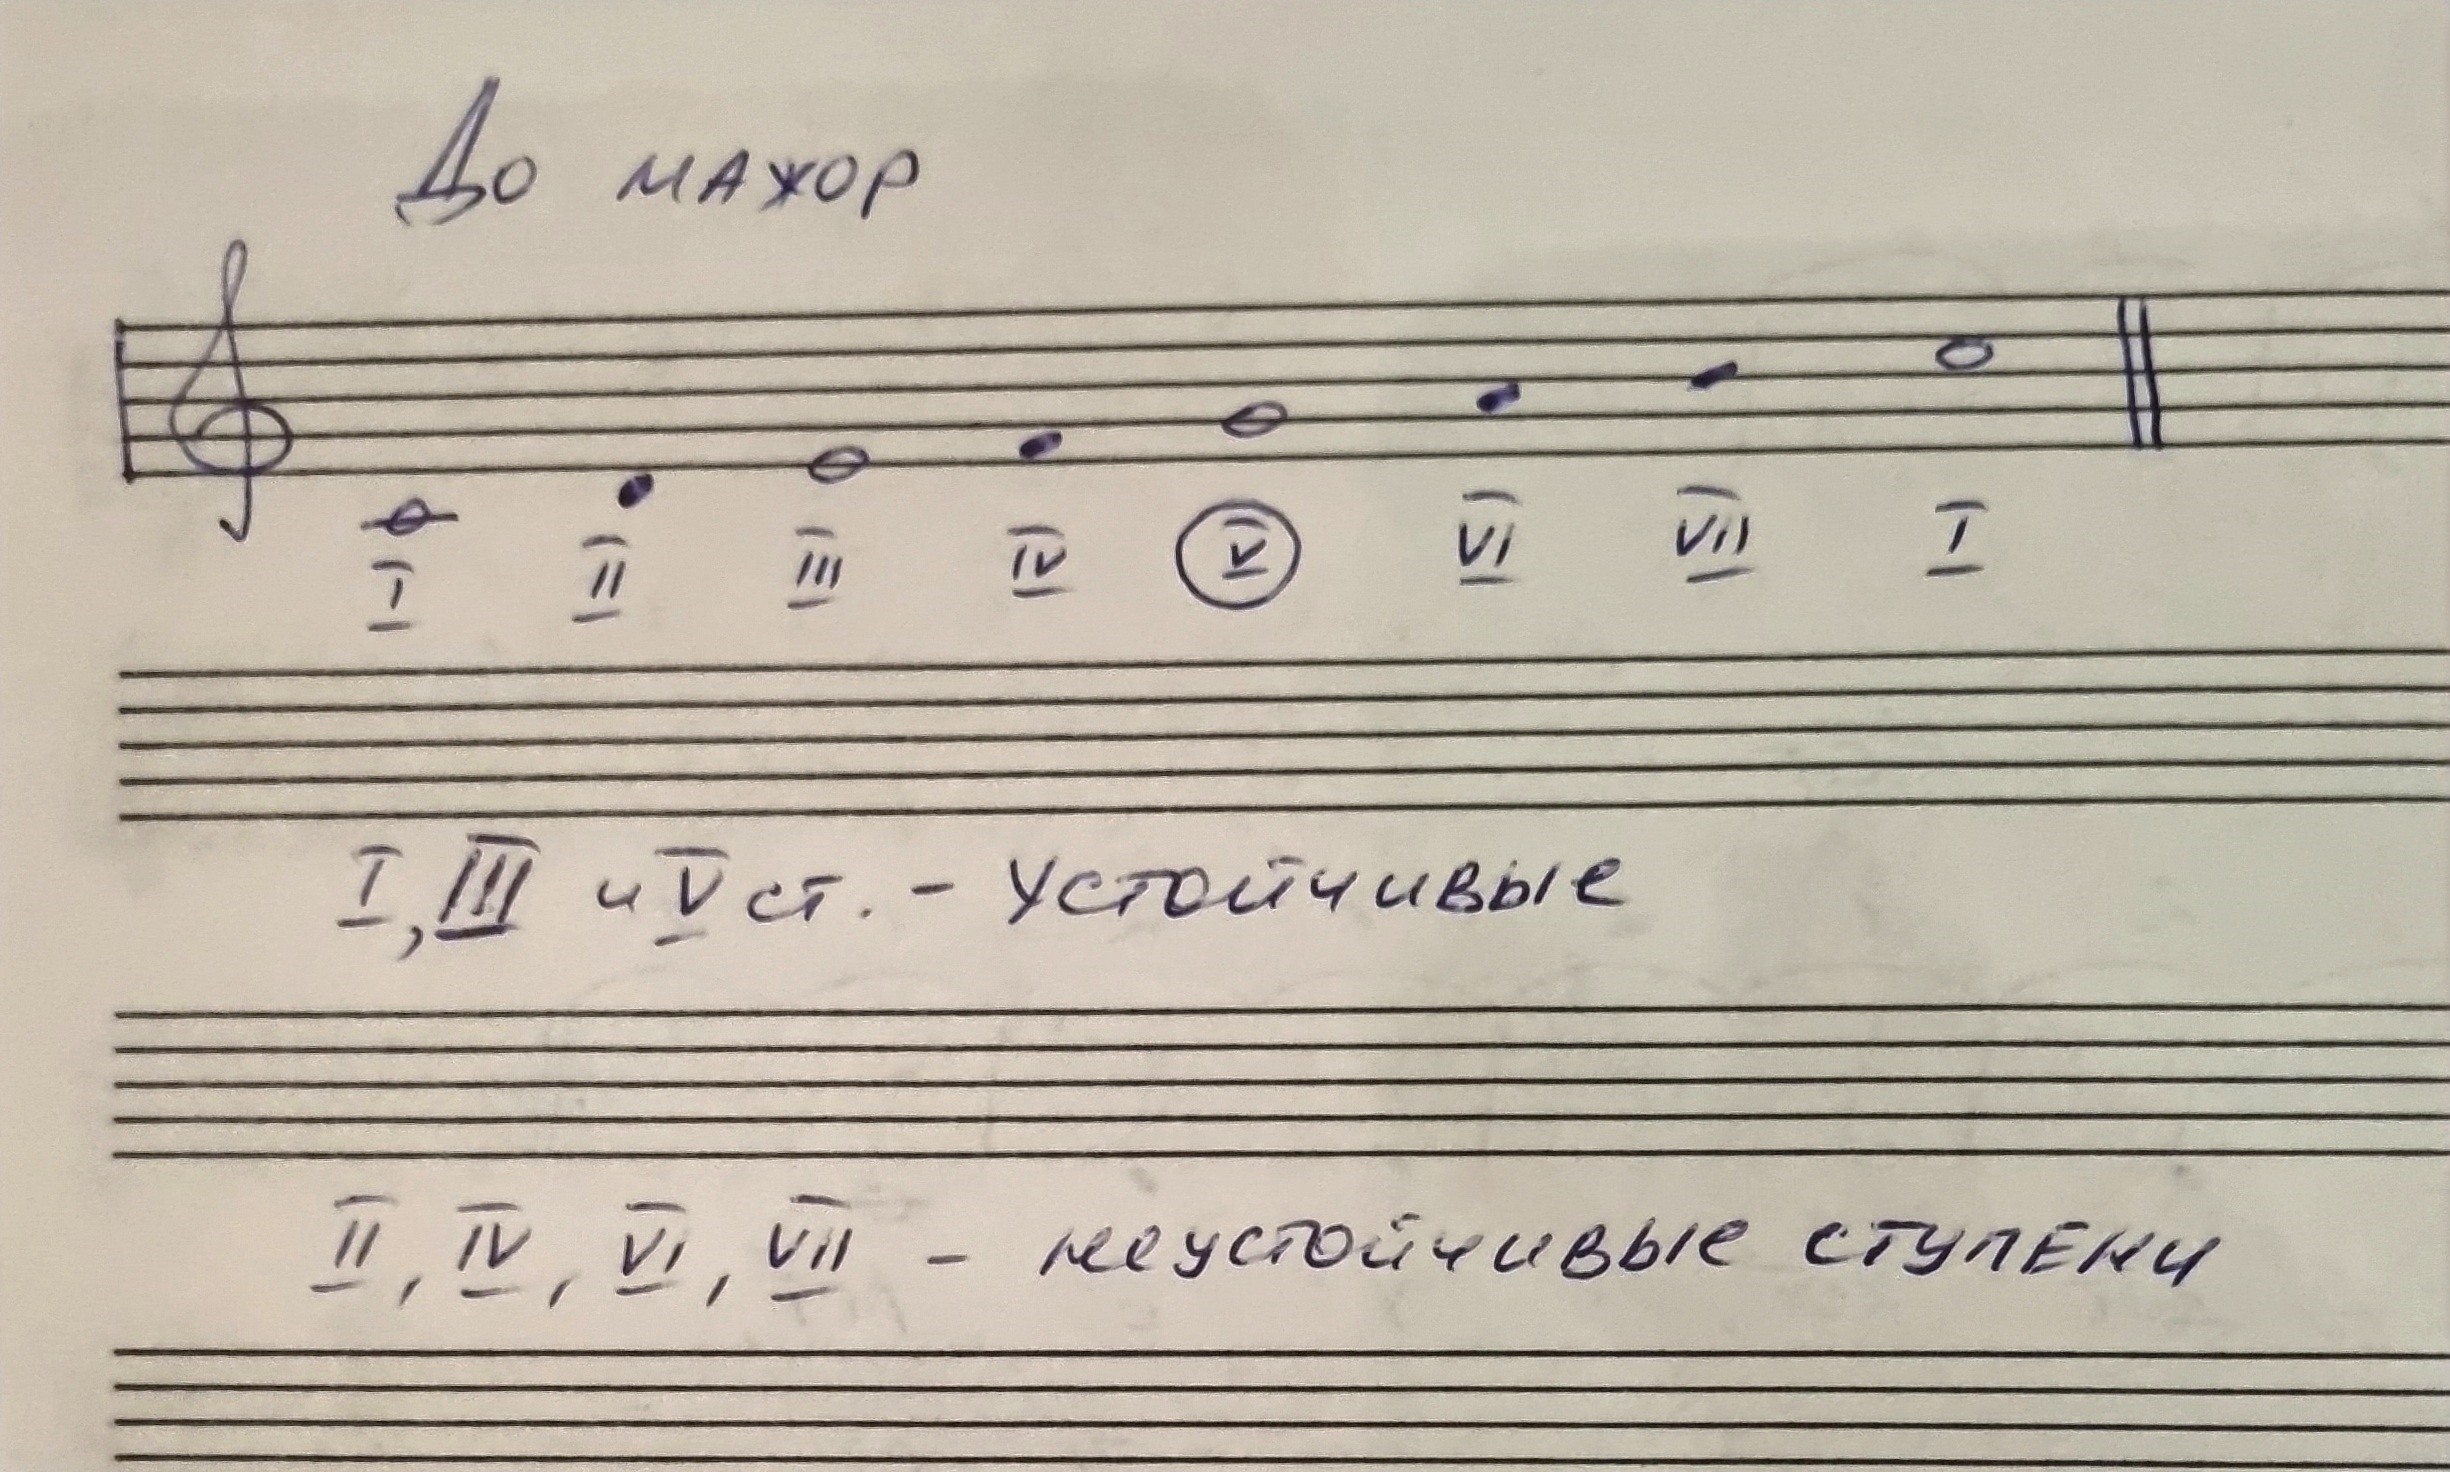 До мажор
I II III IV V VI VII I
I, III и V ст. - устойчивые
II, IV, VI, VII - неустойчивые ступени